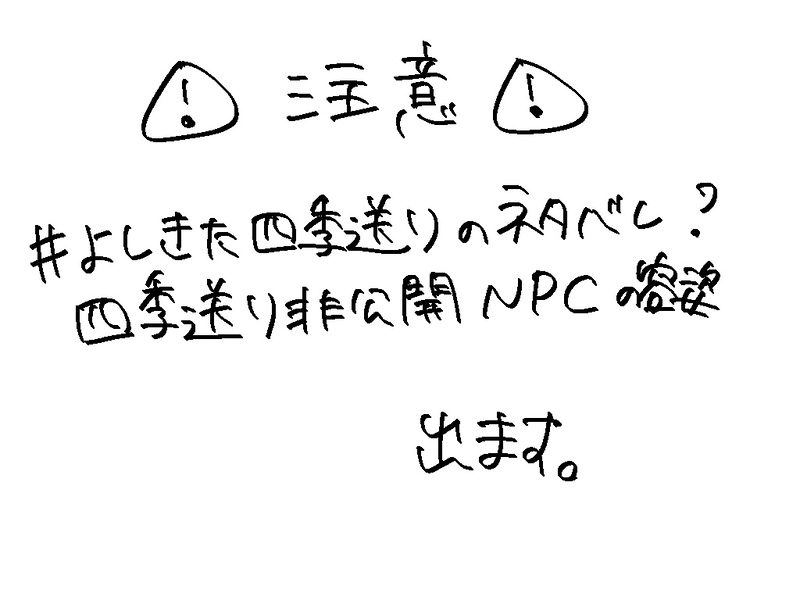 ⚠ 注意 ⚠
#よしきた四季送りのネタバレ?
四季送り非公開NPCの容姿
出ます。